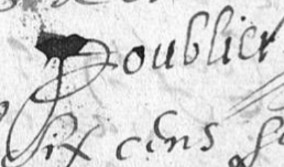 Doublier
Six cens